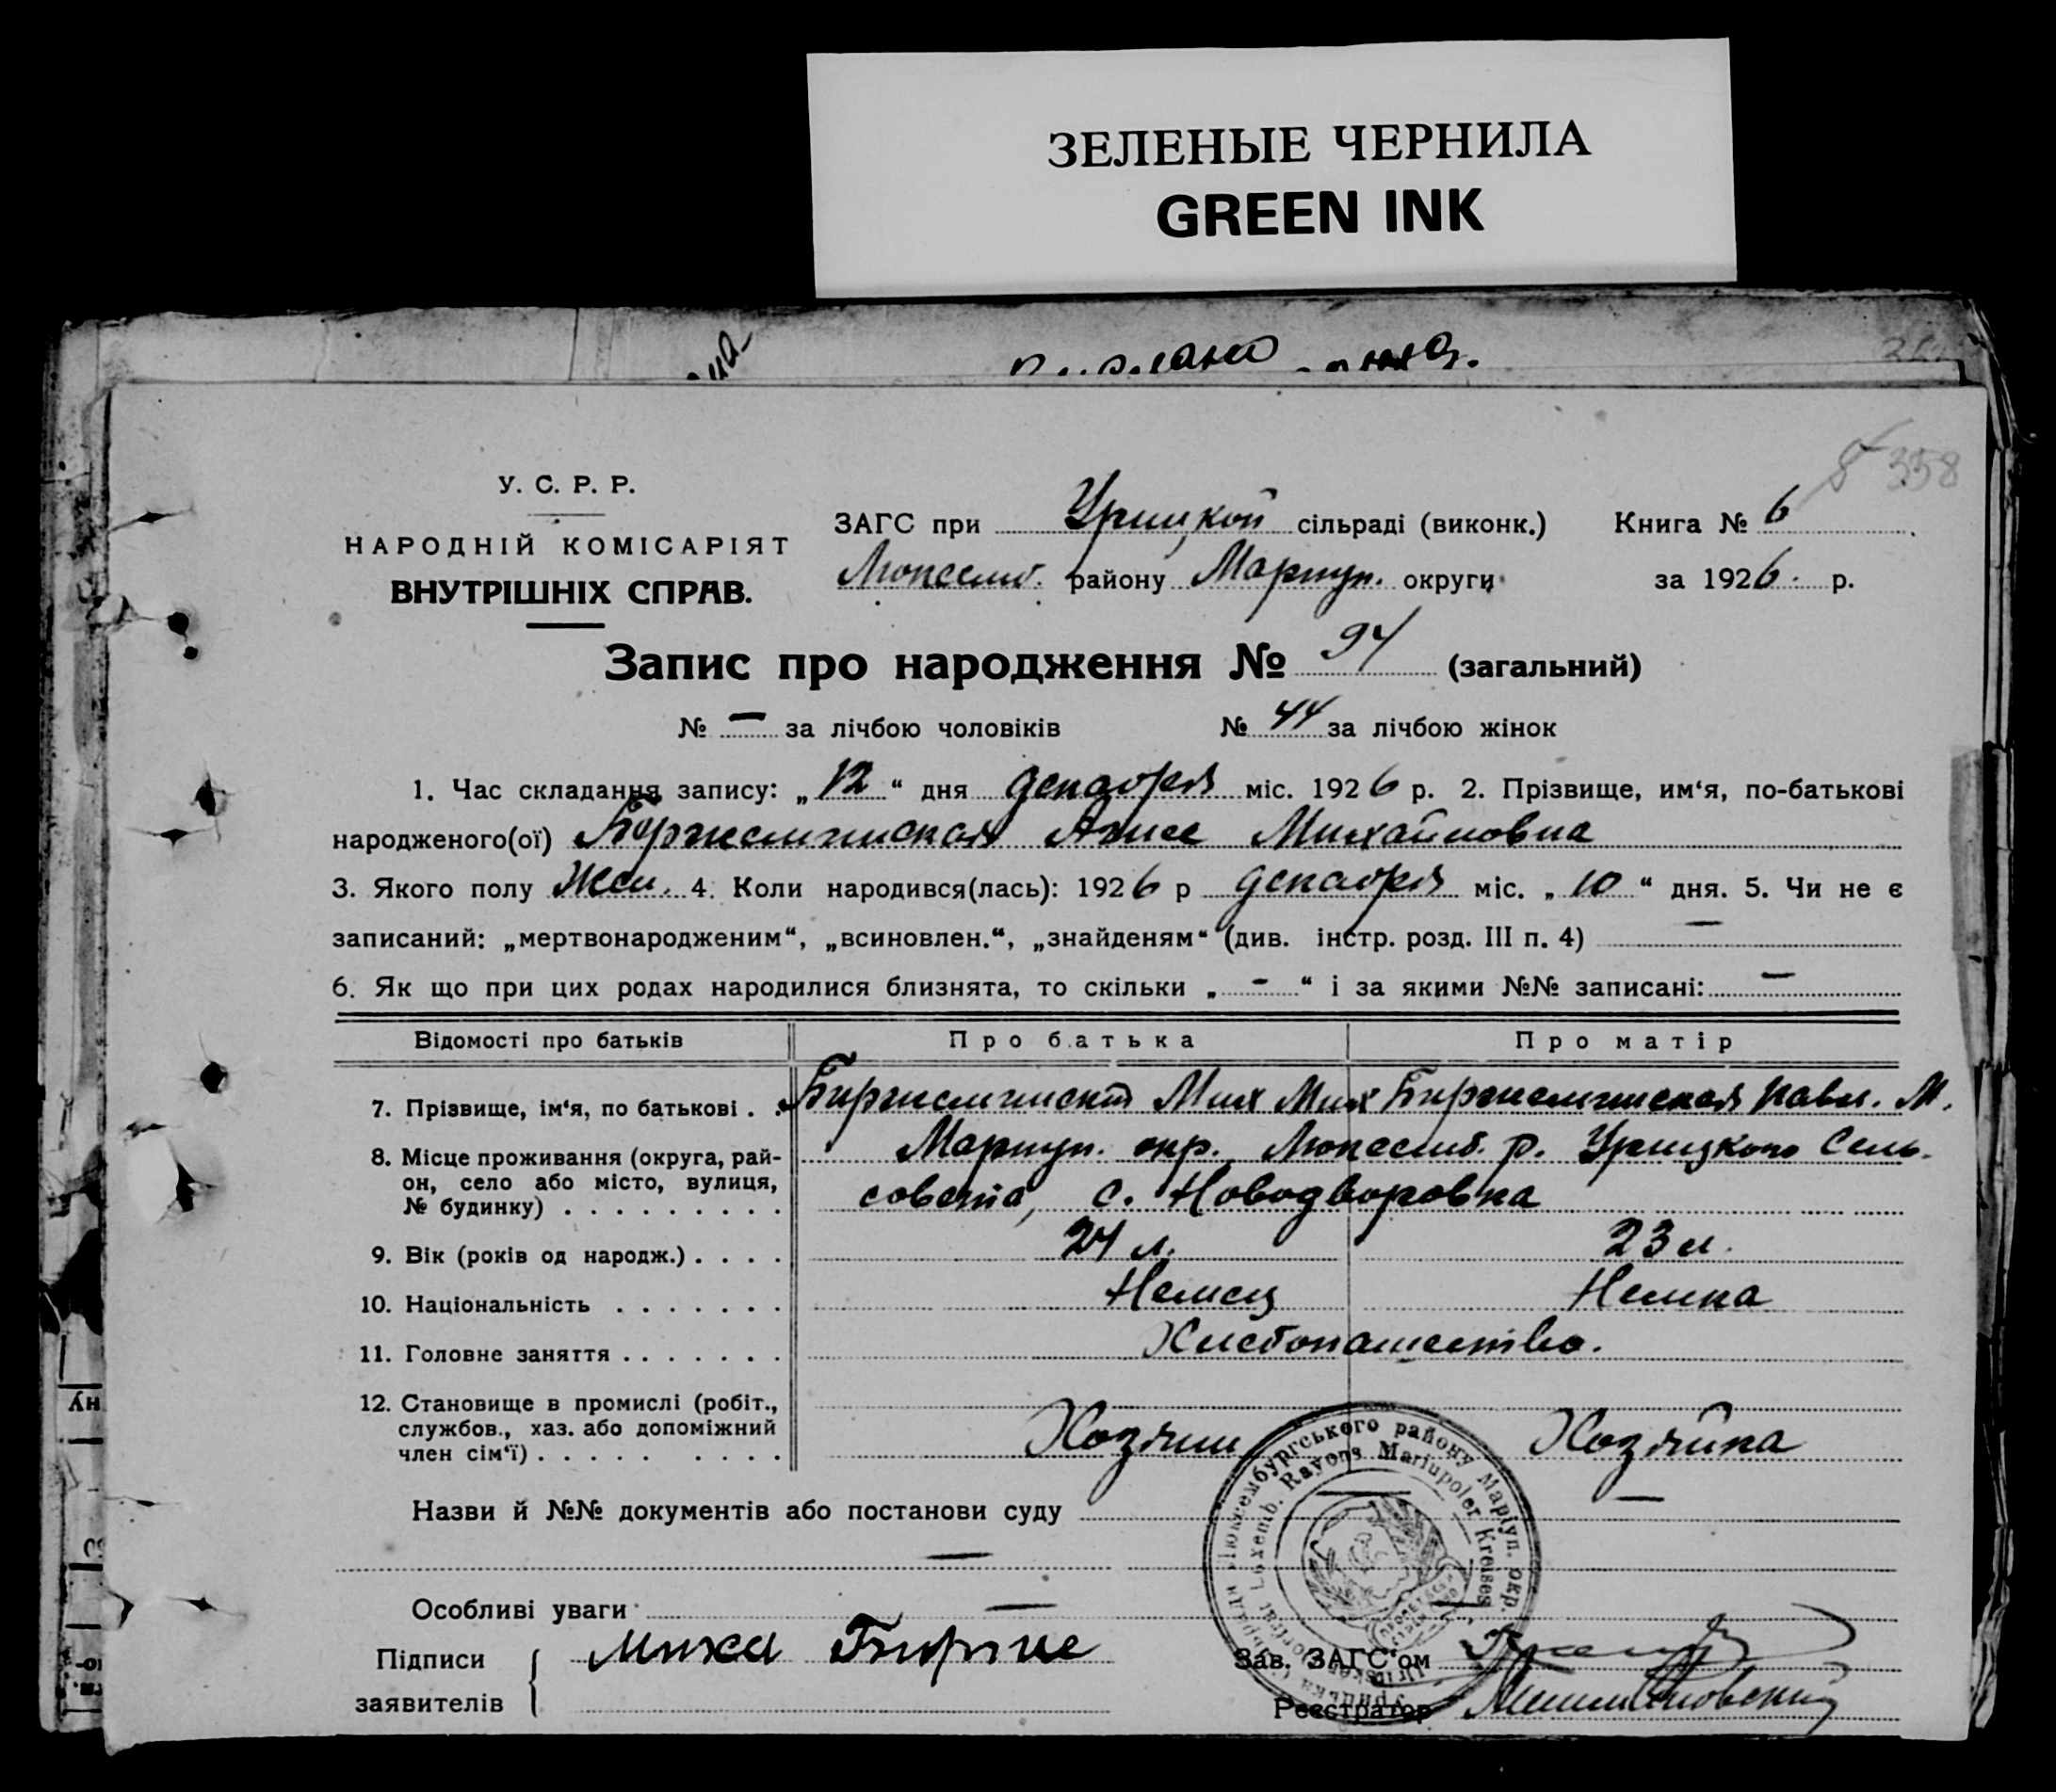 ЗЕЛЕНЫЕ ЧЕРНИЛА
GREEN INK
358
У. С. Р. Р.
НАРОДНІЙ КОМІСАРІЯТ
ВНУТРІШНІХ СПРАВ.
ЗАГС при Урицкой сільраді (виконк.) Книга № 6
Люксемб. району Мариуп. округи за 1926 р.
Запис про народження № 94 (загальний)
№ — за лічбою чоловіків № 44 за лічбою жінок
1. Час складання запису: „12“ дня декабря міс. 1926 р. 2. Прізвище, им‘я, по-батькові
народженого(ої) Михайловна
3. Якого полу Жен. 4. Коли народився(лась): 1926 р декабря міс. „10“ дня. 5. Чи не є
записаний: „мертвонародженим“, „всиновлен.“, „знайденям“ (див. інстр. розд. III п. 4) —
6. Як що при цих родах народилися близнята, то скільки „-“ і за якими №№ записані: —
Відомості про батьків Про батька Про матір
7. Прізвище, ім‘я, по батькові . . Мих Мих Павл. М.
8. Місце проживання (округа, рай- Мариуп. окр. Люксемб. р. Урицкого Сель-
он, село або місто, вулиця, совета, с. Новодворовка
№ будинку) . . . . . . . . .
9. Вік (років од народж.) . . . . 24 л. 23 л.
10. Національність . . . . . . . Немец Немка
11. Головне заняття . . . . . . . Хлебопашество.
12. Становище в промислі (робіт.,
службов., хаз. або допоміжний Хозяин Хозяйка
член сім‘ї) . . . . . . . . .
Назви й №№ документів або постанови суду —
—
Особливі уваги —
Підписи
заявителів
Зав. ЗАГС‘ом
Реєстратор
Люксембургського району Маріуп. окр.
Luxemb. Rayons Mariupoler Kreises